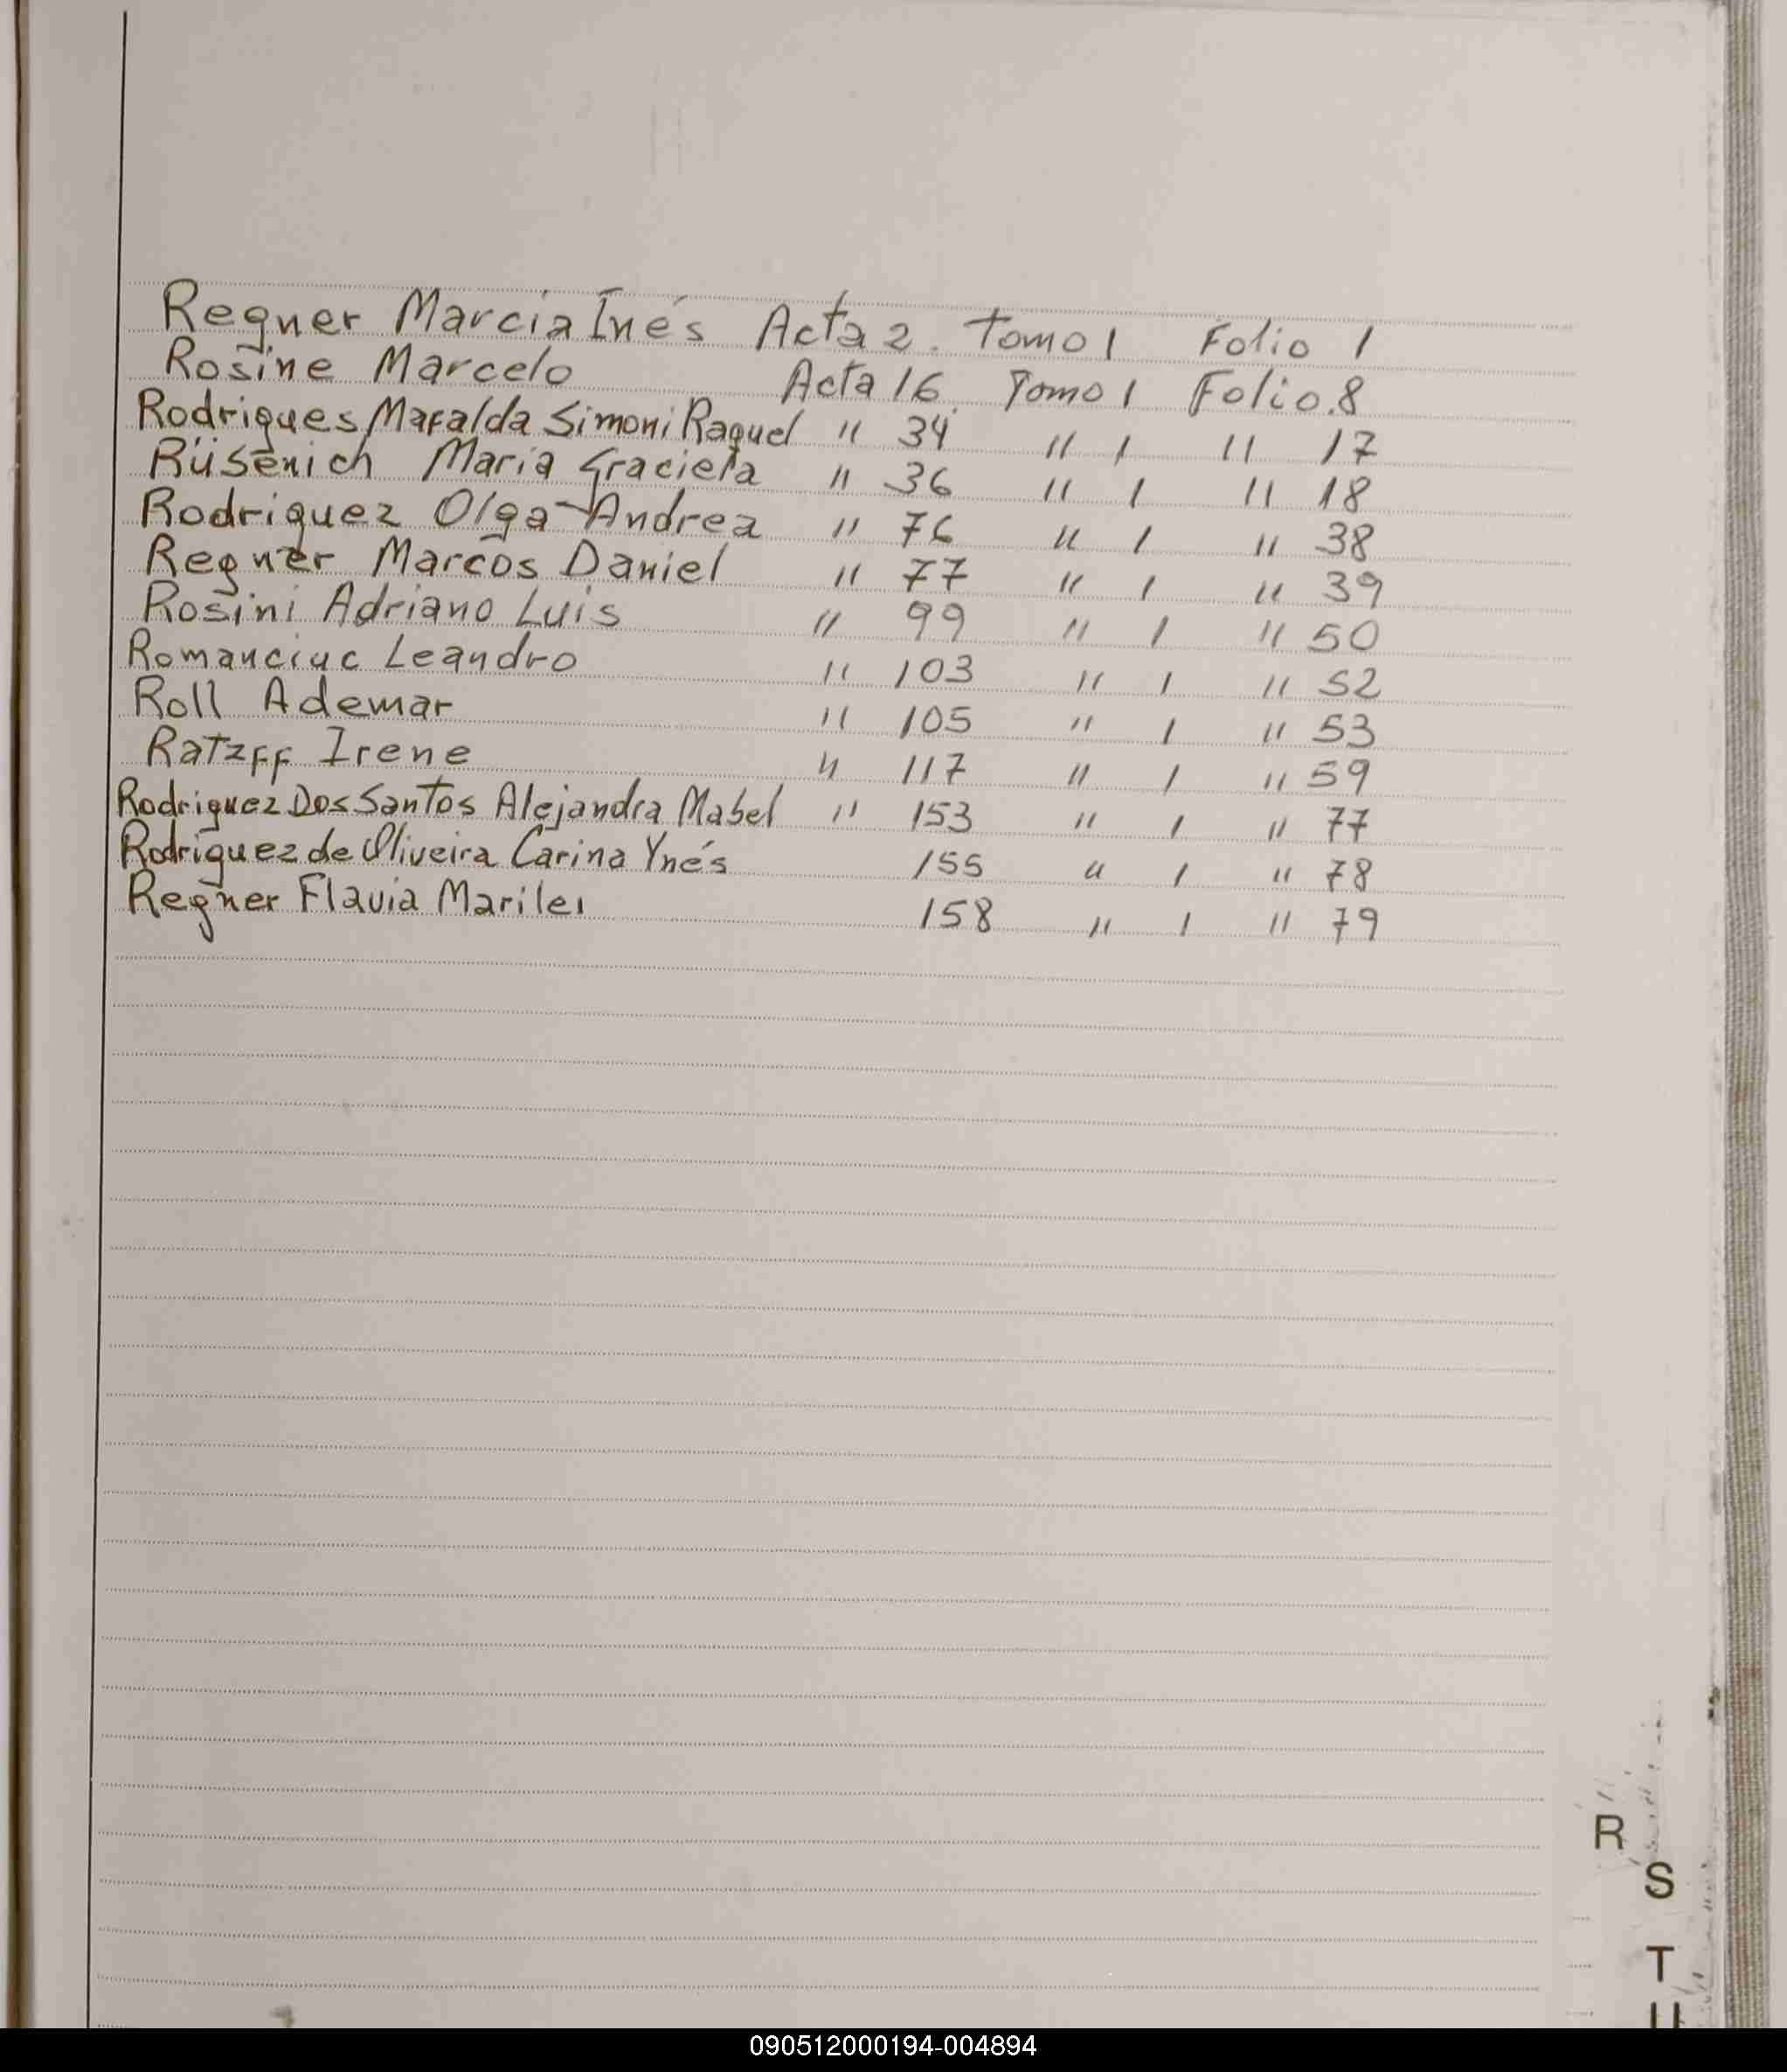 Regner Marcia Inés Acta 2. Tomo 1 Folio 1
Rosine Marcelo Acta 16 Tomo 1 Folio 8
Rodrigues Mafalda Simoni Raquel " 34 " 1 " 17
Rüsenich Maria Graciela " 36 " 1 " 18
Rodriguez Olga Andrea " 76 " 1 " 38
Regner Marcos Daniel " 77 " 1 " 39
Rosini Adriano Luis " 99 " 1 " 50
Romanciuc Leandro " 103 " 1 " 52
Roll Ademar " 105 " 1 " 53
Ratzff Irene " 117 " 1 " 59
Rodriguez Dos Santos Alejandra Mabel " 153 " 1 " 77
Rodriguez de Oliveira Carina Ynés 155 " 1 " 78
Regner Flavia Marilei 158 " 1 " 79
R
S
T
U
090512000194-004894